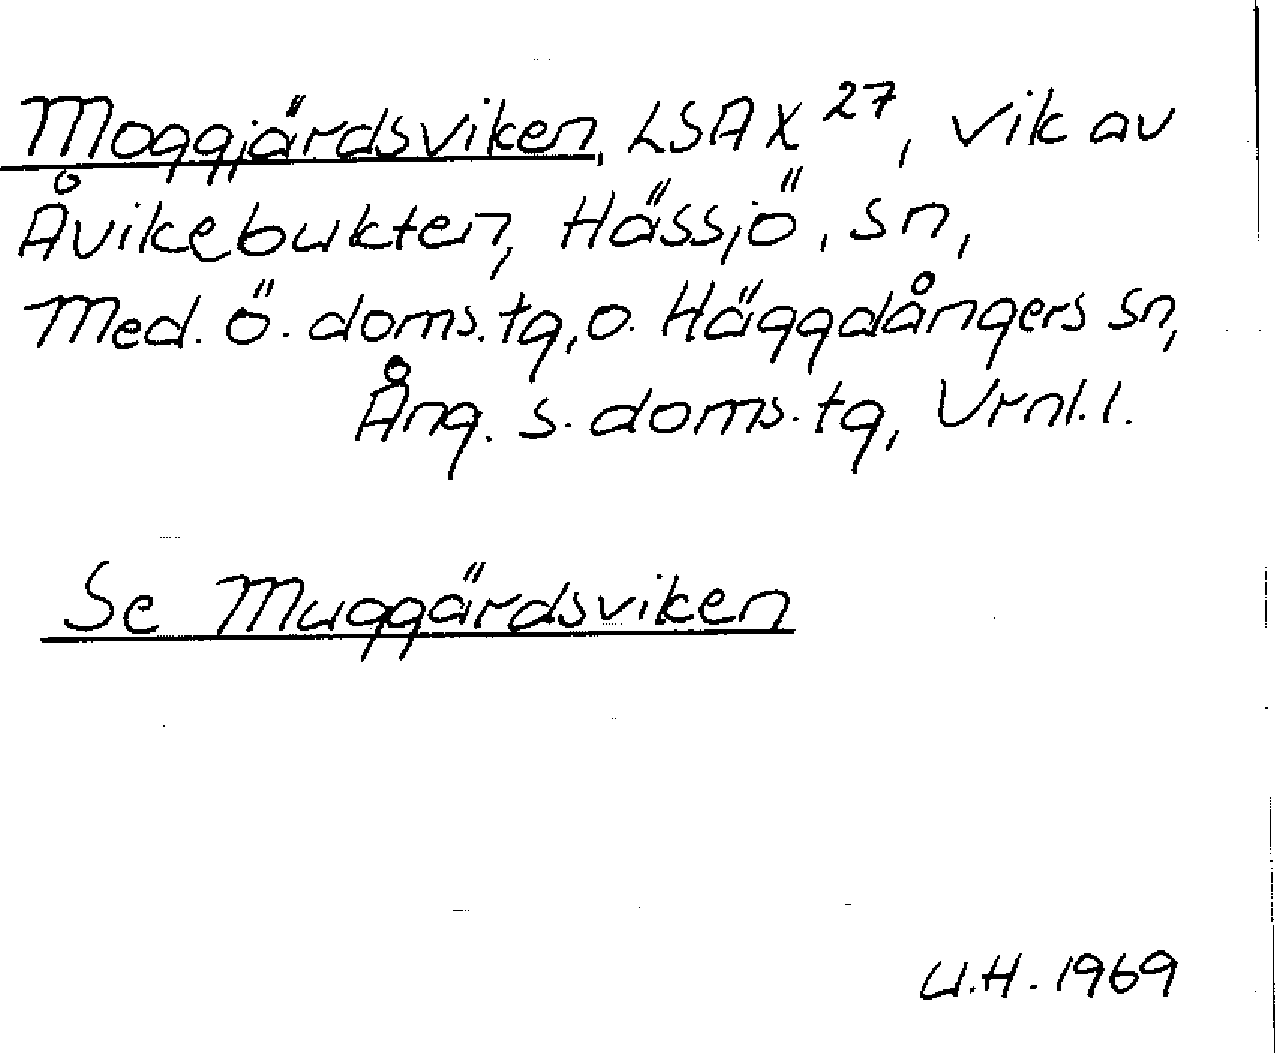 Moggjärdsviken, LSA X 27, vik av
Åvikebukten, Hässjö, sn,
Med. ö. doms. tg, o. Häggdångers sn,
Ång. s. doms. tg, Vrnl. l.
Se Muggärdsviken
U.H. 1969